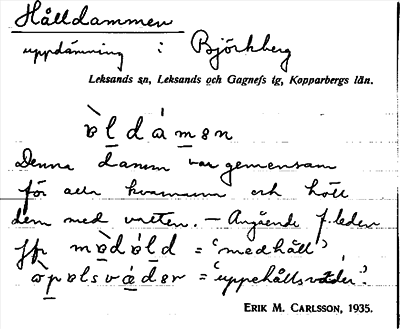 Hålldammen
uppdämning i Björkberg
Leksands sn, Leksands och Gagnefs tg, Kopparbergs län.
ɒ̀ldámən
Denna damm var gemensam
för alla kvarnarna och höll
dem med vatten. – Angående f. leden
jfr mɒ̀dɒ́ld = 'medhåll',
ɒ̀pɒlsvǽdər = 'uppehållsväder'.
ERIK M. CARLSSON, 1935.